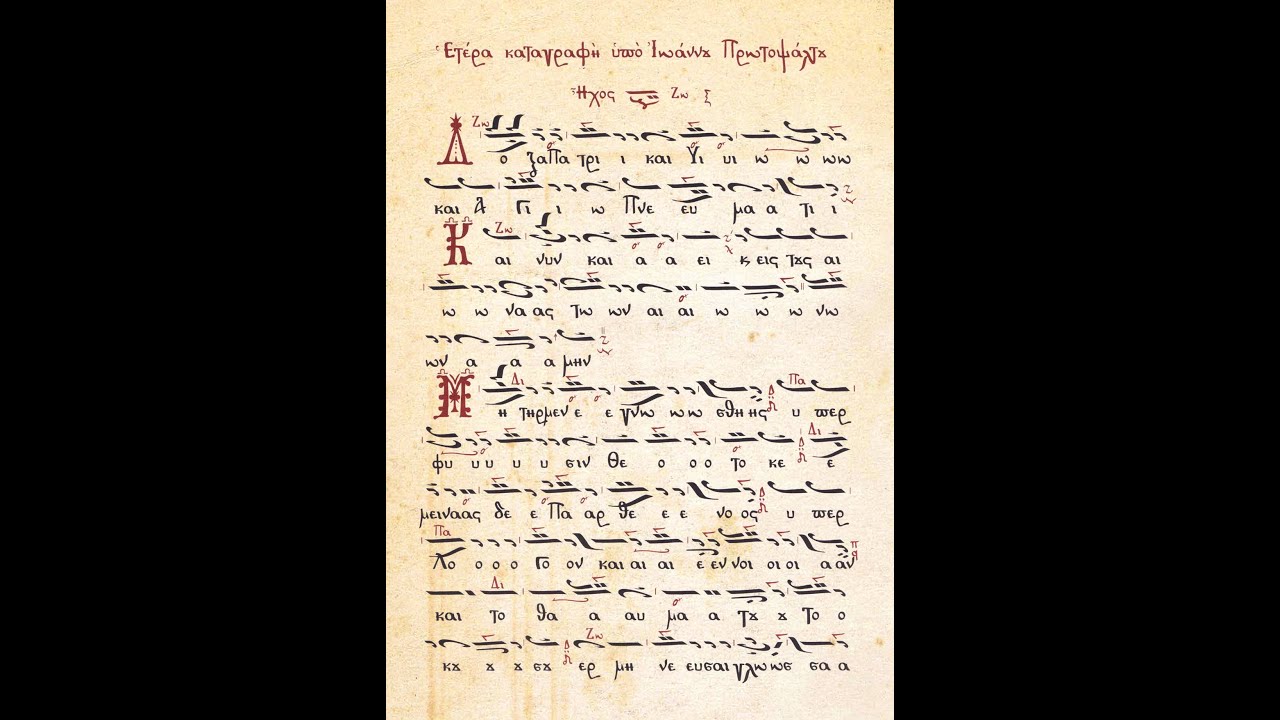 Ἑτέρα καταγραφὴ ὑπὸ Ἰωάννȣ Πρωτοψάλτȣ
Ἦχος Ζω ξ
Ζω
Δ ο ξα Πα τρι ι και Υι υι ω ω ωω
και Α γι ι ω Πνε ευ μα α τι ι
Ζω
Κ αι νυν και α α ει κ εις τȣς αι
ω ω να ας τω ων αι αι ω ω ω νω
ων α α α μην
Δι Πα
Μ η τηρ μεν ε ε γνω ω ω σθη ης υ περ
Δι
φυ υ υ υ υ σιν Θε ο ο ο το κε ε
μεινα ας δε ε Πα αρ θε ε ε νο ος υ περ
Πα
λο ο ο ο γο ον και αι αι ε εν νοι οι οι α αν
Δι
και το θα α αυ μα α τȣ ȣ το ο
Ζω
κȣ ȣ ȣ σȣ ερ μη νε ευσαι γλω ωσ σα α